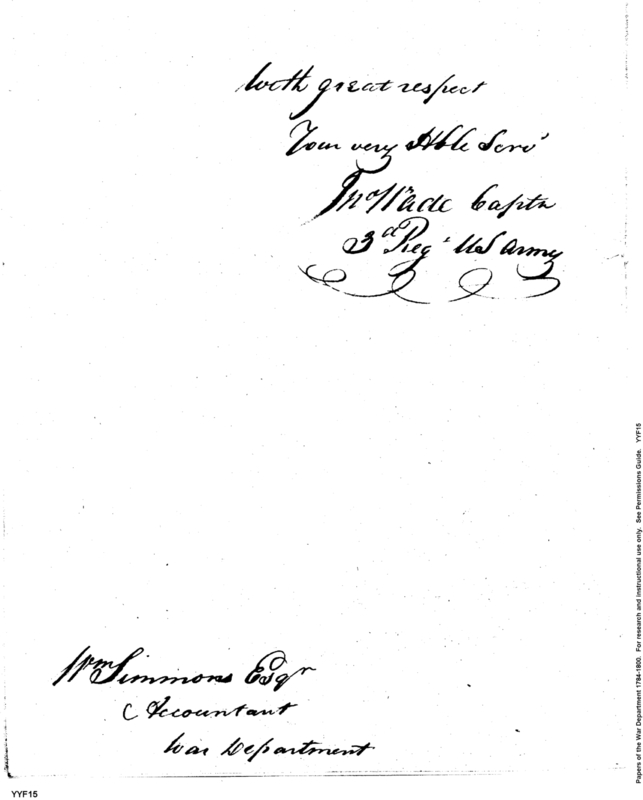 with great respect
Your very Hble Servt
Thos Wade Captn
3d Regt US army
Wm Simmons Esqr
Accountant
War Department
YYF15
Papers of the War Department 1784-1800. For research and instructional use only. See Permissions Guide. YYF15